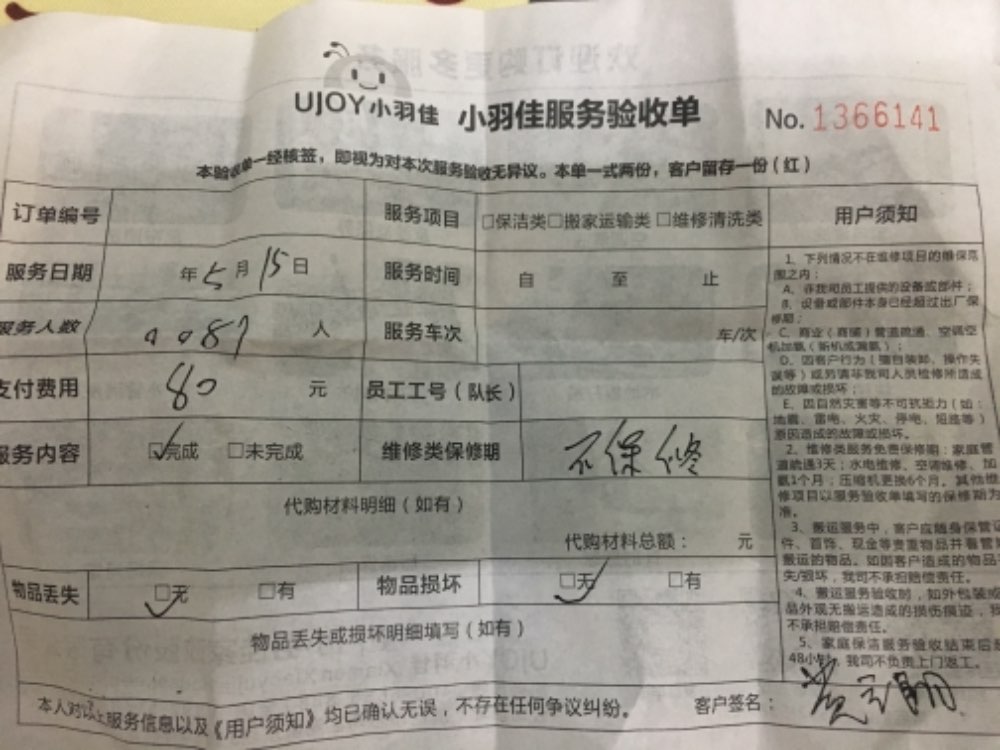 UJOY小羽佳 小羽佳服务验收单 No. 1366141
本验收单一经核签，即视为对本次服务验收无异议。本单一式两份，客户留存一份（红）
订单编号 服务项目 □保洁类□搬家运输类 □维修清洗类 用户须知
服务日期 年5月15日 服务时间 自 至 止
服务人数 0087 人 服务车次 车/次
支付费用 80 元 员工工号（队长）
服务内容 ☑完成 □未完成 维修类保修期 不保修
代购材料明细（如有）
代购材料总额： 元
物品丢失 ☑无 □有 物品损坏 ☑无 □有
物品丢失或损坏明细填写（如有）
本人对以上服务信息以及《用户须知》均已确认无误，不存在任何争议纠纷。 客户签名：
1、下列情况不在维修项目的维保范
围之内：
A、非我司员工提供的设备或部件；
B、设备或部件本身已经超过出厂保
修期；
C、商业（商铺）管道疏通、空调空
机加氨（新机或漏氨）；
D、因客户行为（擅自装卸、操作失
误等）或另请非我司人员检修所造成
的故障或损坏；
E、因自然灾害等不可抗拒力（如：
地震、雷电、火灾、停电、短路等）
原因造成的故障或损坏。
2、维修类服务免费保修期：家庭管
道疏通3天；水电维修、空调维修、加
氨1个月；压缩机更换6个月。其他维
修项目以服务验收单填写的保修期为
准。
3、搬运服务中，客户应随身保管证
件、首饰、现金等贵重物品并看管
搬运的物品。如因客户造成的物品
失/损坏，我司不承担赔偿责任。
4、搬运服务验收时，如外包装或
品外观无搬运造成的损伤痕迹，我
不承担赔偿责任。
5、家庭保洁服务验收结束后超
48小时，我司不负责上门返工。